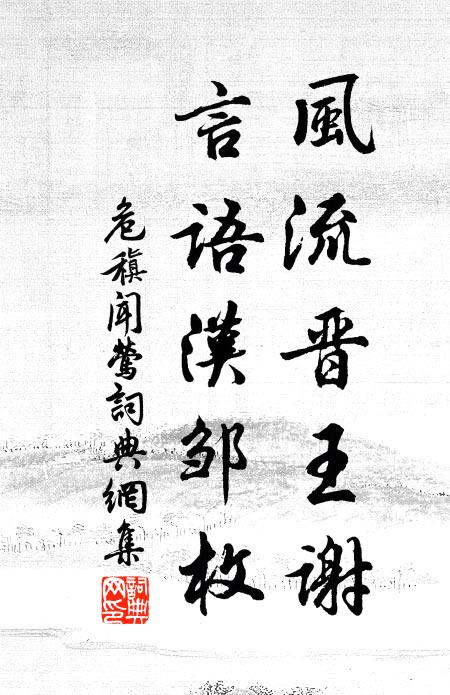 風流晋王谢
言语漢邹枚
危稹闻莺詞典網集
詞典网印